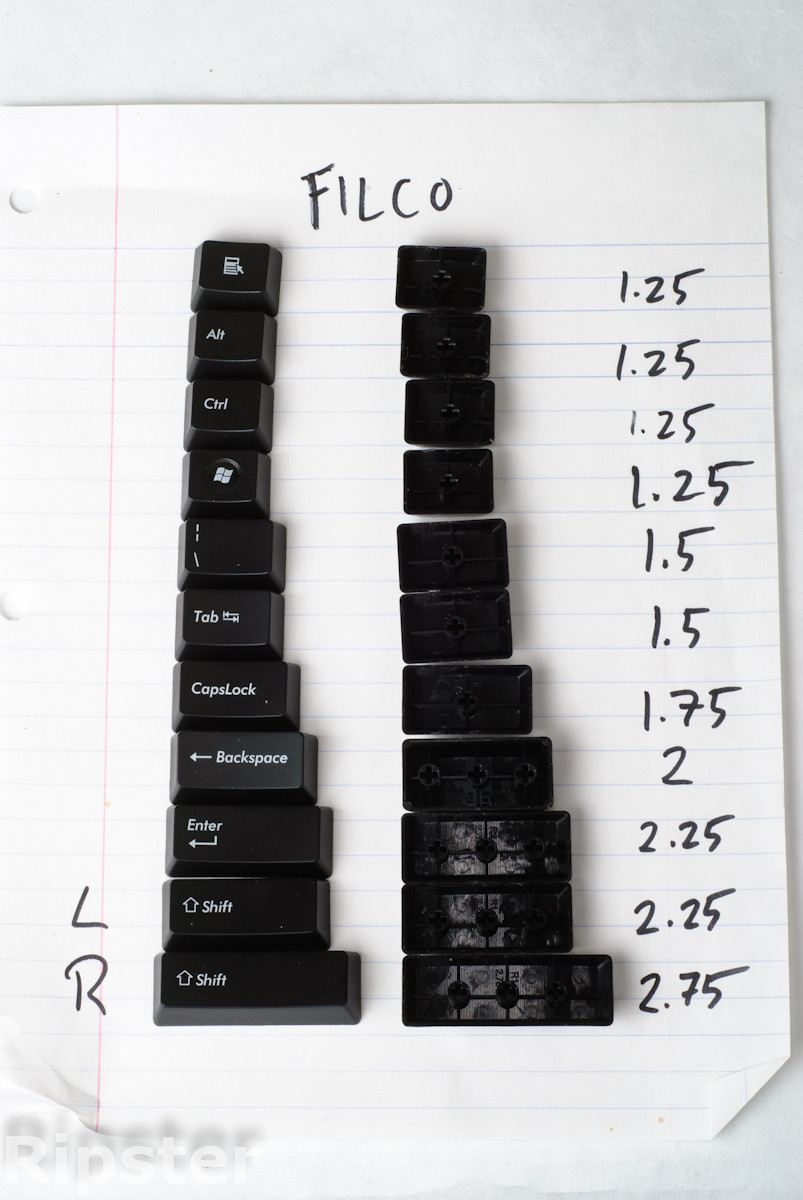 FILCO
1.25
Alt 1.25
Ctrl 1.25
1.25
¦ \ 1.5
Tab 1.5
CapsLock 1.75
← Backspace 2
Enter 2.25
L ⇧ Shift 2.25
R ⇧ Shift 2.75
Ripster